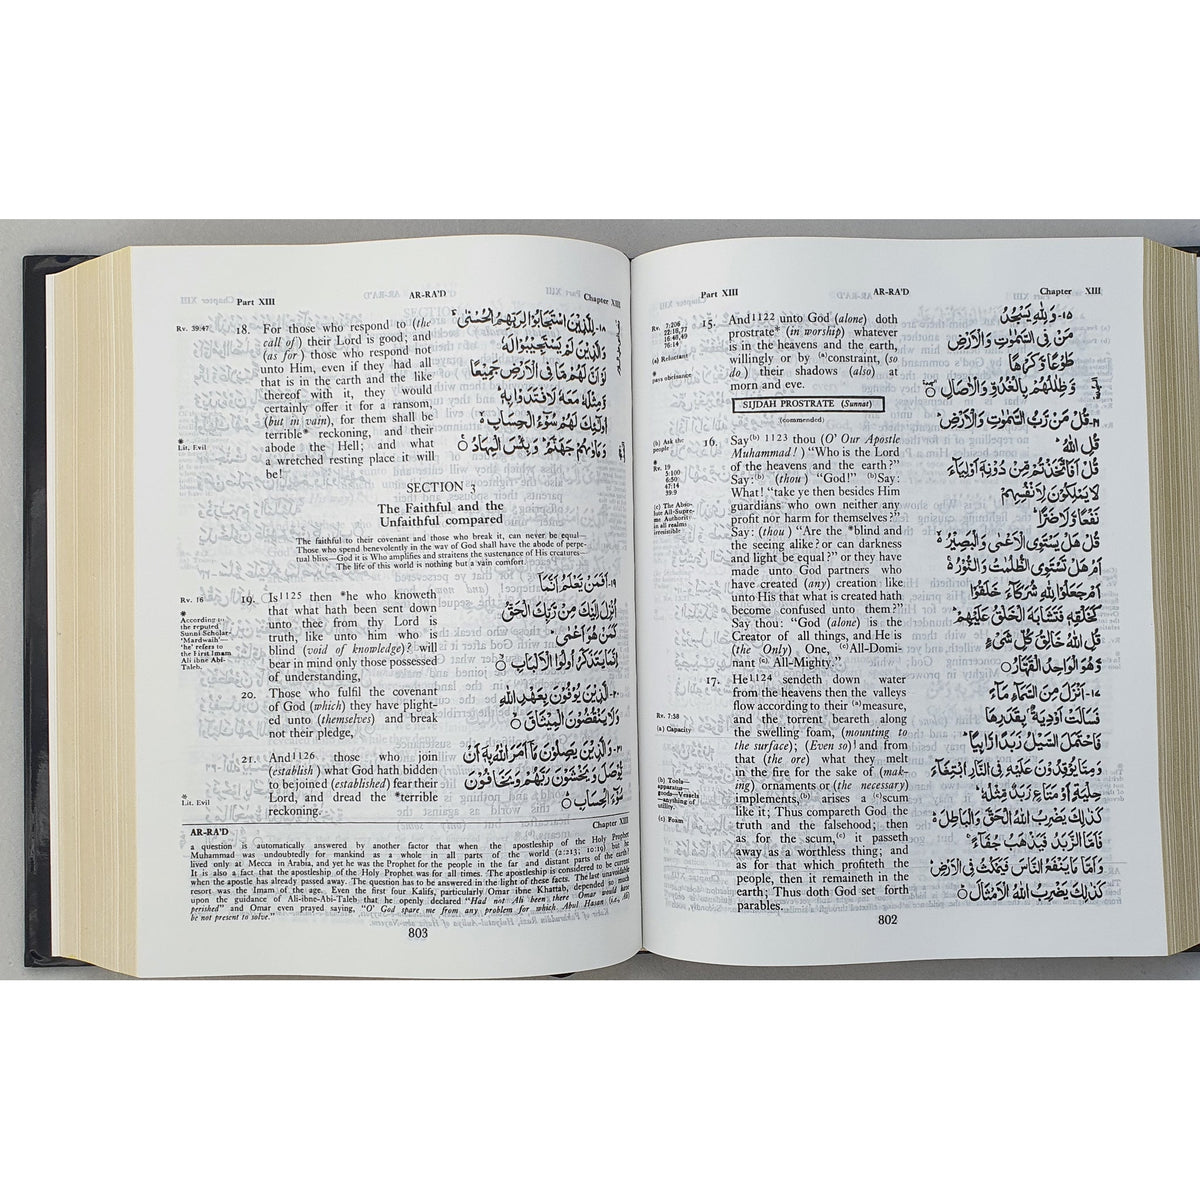 Part XIII
AR-RA'D
Chapter XIII
15. And1122 unto God (alone) doth
prostrate* (in worship) whatever
is in the heavens and the earth,
willingly or by (a)constraint, (so
do) their shadows (also) at
morn and eve.
SIJDAH PROSTRATE (Sunnat)
(commended)
16. Say(b) 1123 thou (O' Our Apostle
Muhammad!) "Who is the Lord
of the heavens and the earth?"
Say:(b) (thou) "God!" (b)Say:
What! "take ye then besides Him
guardians who own neither any
profit nor harm for themselves?"
Say: (thou) "Are the *blind and
the seeing alike? or can darkness
and light be equal?" or they have
made unto God partners who
have created (any) creation like
unto His that what is created hath
become confused unto them?"
Say thou: "God (alone) is the
Creator of all things, and He is
(the Only) One, (c)All-Domi-
nant (c) All-Mighty."
17. He1124 sendeth down water
from the heavens then the valleys
flow according to their (a)measure,
and the torrent beareth along
the swelling foam, (mounting to
the surface); (Even so)! and from
that (the ore) what they melt
in the fire for the sake of (mak-
ing) ornaments or (the necessary)
implements,(b) arises a (c)scum
like it; Thus compareth God the
truth and the falsehood; then
as for the scum,(c) it passeth
away as a worthless thing; and
as for that which profiteth the
people, then it remaineth in the
earth; Thus doth God set forth
parables.
Rv. 7:206
22:18,77
16:48,49
76:14
(a) Reluctant
*
pays obeisance
(b) Ask the
people
*
Rv. 19
5:100
6:50
47:14
39:9
(c) The Abso-
lute All-Supre-
me Authority
in all realms
irresistible
Rv. 7:58
(a) Capacity
(b) Tools—
apparatus—
goods—Vessels
—anything of
utility.
(c) Foam
١٥- وَلِلّٰهِ يَسْجُدُ
مَنْ فِى السَّمٰوٰتِ وَالْاَرْضِ
طَوْعًا وَّكَرْهًا
وَّظِلٰلُهُمْ بِالْغُدُوِّ وَالْاٰصَالِ
١٦- قُلْ مَنْ رَّبُّ السَّمٰوٰتِ وَالْاَرْضِ
قُلِ اللّٰهُ
قُلْ اَفَاتَّخَذْتُمْ مِّنْ دُوْنِهٖٓ اَوْلِيَآءَ
لَا يَمْلِكُوْنَ لِاَنْفُسِهِمْ
نَفْعًا وَّلَا ضَرًّا
قُلْ هَلْ يَسْتَوِى الْاَعْمٰى وَالْبَصِيْرُ
اَمْ هَلْ تَسْتَوِى الظُّلُمٰتُ وَالنُّوْرُ
اَمْ جَعَلُوْا لِلّٰهِ شُرَكَآءَ خَلَقُوْا
كَخَلْقِهٖ فَتَشَابَهَ الْخَلْقُ عَلَيْهِمْ
قُلِ اللّٰهُ خَالِقُ كُلِّ شَىْءٍ
وَّهُوَ الْوَاحِدُ الْقَهَّارُ
١٧- اَنْزَلَ مِنَ السَّمَآءِ مَآءً
فَسَالَتْ اَوْدِيَةٌۢ بِقَدَرِهَا
فَاحْتَمَلَ السَّيْلُ زَبَدًا رَّابِيًا
وَمِمَّا يُوْقِدُوْنَ عَلَيْهِ فِى النَّارِ ابْتِغَآءَ
حِلْيَةٍ اَوْ مَتَاعٍ زَبَدٌ مِّثْلُهٗ
كَذٰلِكَ يَضْرِبُ اللّٰهُ الْحَقَّ وَالْبَاطِلَ
فَاَمَّا الزَّبَدُ فَيَذْهَبُ جُفَآءً
وَاَمَّا مَا يَنْفَعُ النَّاسَ فَيَمْكُثُ فِى الْاَرْضِ
كَذٰلِكَ يَضْرِبُ اللّٰهُ الْاَمْثَالَ
802
Part XIII
AR-RA'D
Chapter XIII
18. For those who respond to (the
call of) their Lord is good; and
(as for) those who respond not
unto Him, even if they had all
that is in the earth and the like
thereof with it, they would
certainly offer it for a ransom,
(but in vain), for them shall be
terrible* reckoning, and their
abode the Hell; and what
a wretched resting place it will
be!
SECTION 3
The Faithful and the
Unfaithful compared
The faithful to their covenant and those who break it, can never be equal—
Those who spend benevolently in the way of God shall have the abode of perpe-
tual bliss—God it is Who amplifies and straitens the sustenance of His creatures—
The life of this world is nothing but a vain comfort.
19. Is1125 then *he who knoweth
that what hath been sent down
unto thee from thy Lord is
truth, like unto him who is
blind (void of knowledge)? will
bear in mind only those possessed
of understanding,
20. Those who fulfil the covenant
of God (which) they have plight-
ed unto (themselves) and break
not their pledge,
21. And1126 those who join
(establish) what God hath bidden
to be joined (established) fear their
Lord, and dread the *terrible
reckoning.
Rv. 39:47
*
Lit. Evil
Rv. 16
*
According to
the reputed
Sunni Scholar-
'Mardwaih'—
'he' refers to
the First Imam
Ali ibne Abi-
Taleb.
*
Lit. Evil
١٨- لِلَّذِيْنَ اسْتَجَابُوْا لِرَبِّهِمُ الْحُسْنٰى
وَالَّذِيْنَ لَمْ يَسْتَجِيْبُوْا لَهٗ
لَوْ اَنَّ لَهُمْ مَّا فِى الْاَرْضِ جَمِيْعًا
وَّمِثْلَهٗ مَعَهٗ لَافْتَدَوْا بِهٖ
اُولٰٓئِكَ لَهُمْ سُوْٓءُ الْحِسَابِ
وَمَاْوٰىهُمْ جَهَنَّمُ وَبِئْسَ الْمِهَادُ
١٩- اَفَمَنْ يَّعْلَمُ اَنَّمَآ
اُنْزِلَ اِلَيْكَ مِنْ رَّبِّكَ الْحَقُّ
كَمَنْ هُوَ اَعْمٰى
اِنَّمَا يَتَذَكَّرُ اُولُوا الْاَلْبَابِ
٢٠- الَّذِيْنَ يُوْفُوْنَ بِعَهْدِ اللّٰهِ
وَلَا يَنْقُضُوْنَ الْمِيْثَاقَ
٢١- وَالَّذِيْنَ يَصِلُوْنَ مَآ اَمَرَ اللّٰهُ بِهٖٓ اَنْ
يُّوْصَلَ وَيَخْشَوْنَ رَبَّهُمْ وَيَخَافُوْنَ
سُوْٓءَ الْحِسَابِ
AR-RA'D
Chapter XIII
a question is automatically answered by another factor that when the apostleship of the Holy Prophet
Muhammad was undoubtedly for mankind as a whole in all parts of the world (2:213; 10:19) but he
lived only at Mecca in Arabia, and he was the Prophet for the people in the far and distant parts of the earth?
It is also a fact that the apostleship of the Holy Prophet was for all times. The apostleship is considered to be current
when the apostle has already passed away. The question has to be answered in the light of these facts. The last unavoidable
resort was the Imam of the age. Even the first four Kalifs, particularly Omar ibne Khattab, depended so much
upon the guidance of Ali-ibne-Abi-Taleb that he openly declared "Had not Ali been there Omar would have
perished" and Omar even prayed saying, "O' God spare me from any problem for which Abul Hasan (i.e., Ali)
be not present to solve."
803